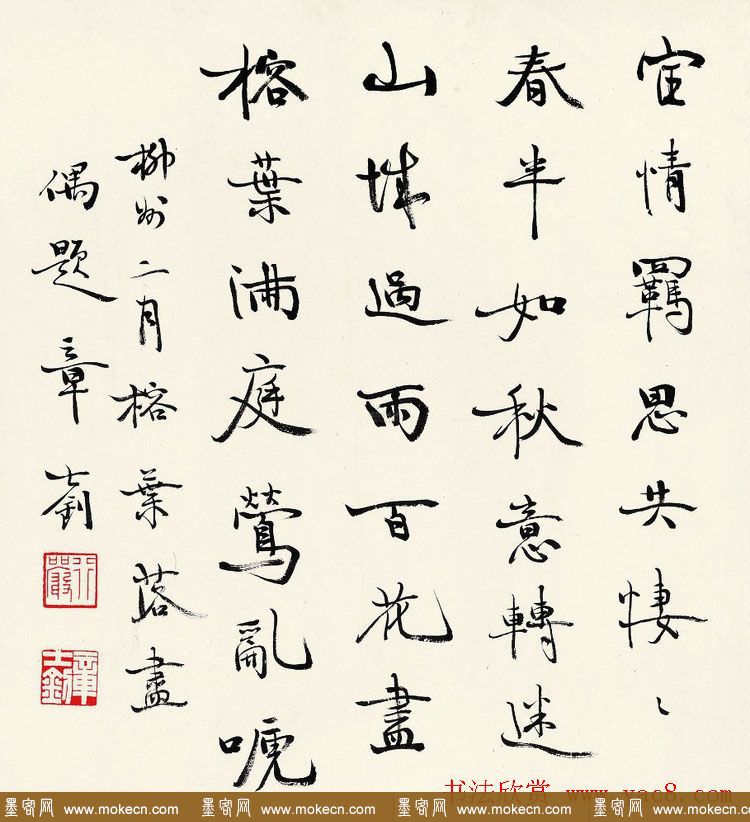 宦情羈思共悽〻
春半如秋意轉迷
山城過雨百花盡
榕葉滿庭鶯亂嗁
柳州二月榕葉落盡
偶題 章士釗
行嚴
章士釗
书法欣赏 www.yac8.com
墨客网 www.mokecn.com 墨客网 www.mokecn.com 墨客网 www.mokecn.com 墨客网 www.mokecn.com